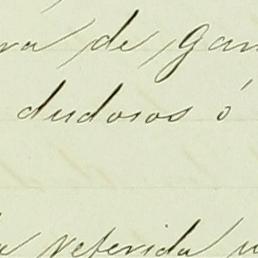 de gan
dudosos ó
referida